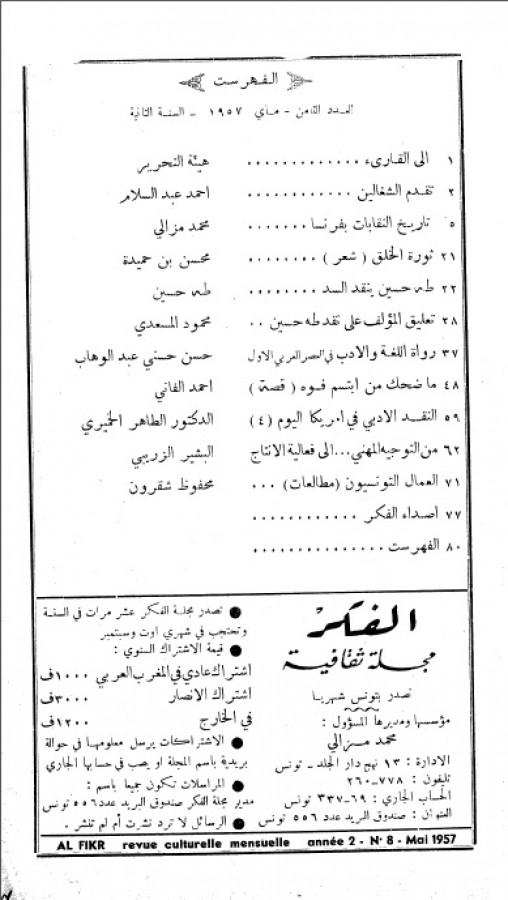 الفهرست
العدد الثامن - ماي ١٩٥٧ - السنة الثانية
١ الى القارىء ............. هيئة التحرير
٢ تقدم الشغالين ............ احمد عبد السلام
٥ تاريخ النقابات بفرنسا ....... محمد مزالي
٢١ ثورة الخلق ( شعر ) ........ محسن بن حميدة
٢٢ طه حسين ينقد السد ........ طه حسين
٢٨ تعليق المؤلف على نقد طه حسين .. محمود المسعدي
٣٧ رواة اللغة والادب في العصر العربي الاول حسن حسني عبد الوهاب
٤٨ ما ضحك من ابتسم فوه ( قصة ) احمد الفاني
٥٩ النقد الادبي في امريكا اليوم (٤) الدكتور الطاهر الخميري
٦٢ من التوجيه المهني... الى فعالية الانتاج البشير الزريبي
٧١ العمال التونسيون (مطالعات) ... محفوظ شقرون
٧٧ اصداء الفكر ............
٨٠ الفهرست ...............
الفكر
مجلة ثقافية
تصدر بتونس شهريا
مؤسسها ومديرها المسؤول :
محمد مزالي
الادارة : ١٣ نهج دار الجلد - تونس
تليفون : ٧٧٨-٢٦٠
الحساب الجاري : ٦٩-٣٣٧ تونس
العنوان : صندوق البريد عدد ٥٥٦ تونس
● تصدر مجلة الفكر عشر مرات في السنة
وتحتجب في شهري اوت وسبتمبر
● قيمة الاشتراك السنوي :
اشتراك عادي في المغرب العربي ١٠٠٠ف
اشتراك الانصار ٣٠٠٠ف
في الخارج ١٢٠٠ف
● الاشتراكات يرسل معلومها في حوالة
بريدية باسم المجلة او يصب في حسابها الجاري
● المراسلات تكون جميعا باسم :
مدير مجلة الفكر صندوق البريد عدد ٥٥٦ تونس
● الرسائل لا ترد نشرت أم لم تنشر .
AL FIKR revue culturelle mensuelle année 2 - N° 8 - Mai 1957